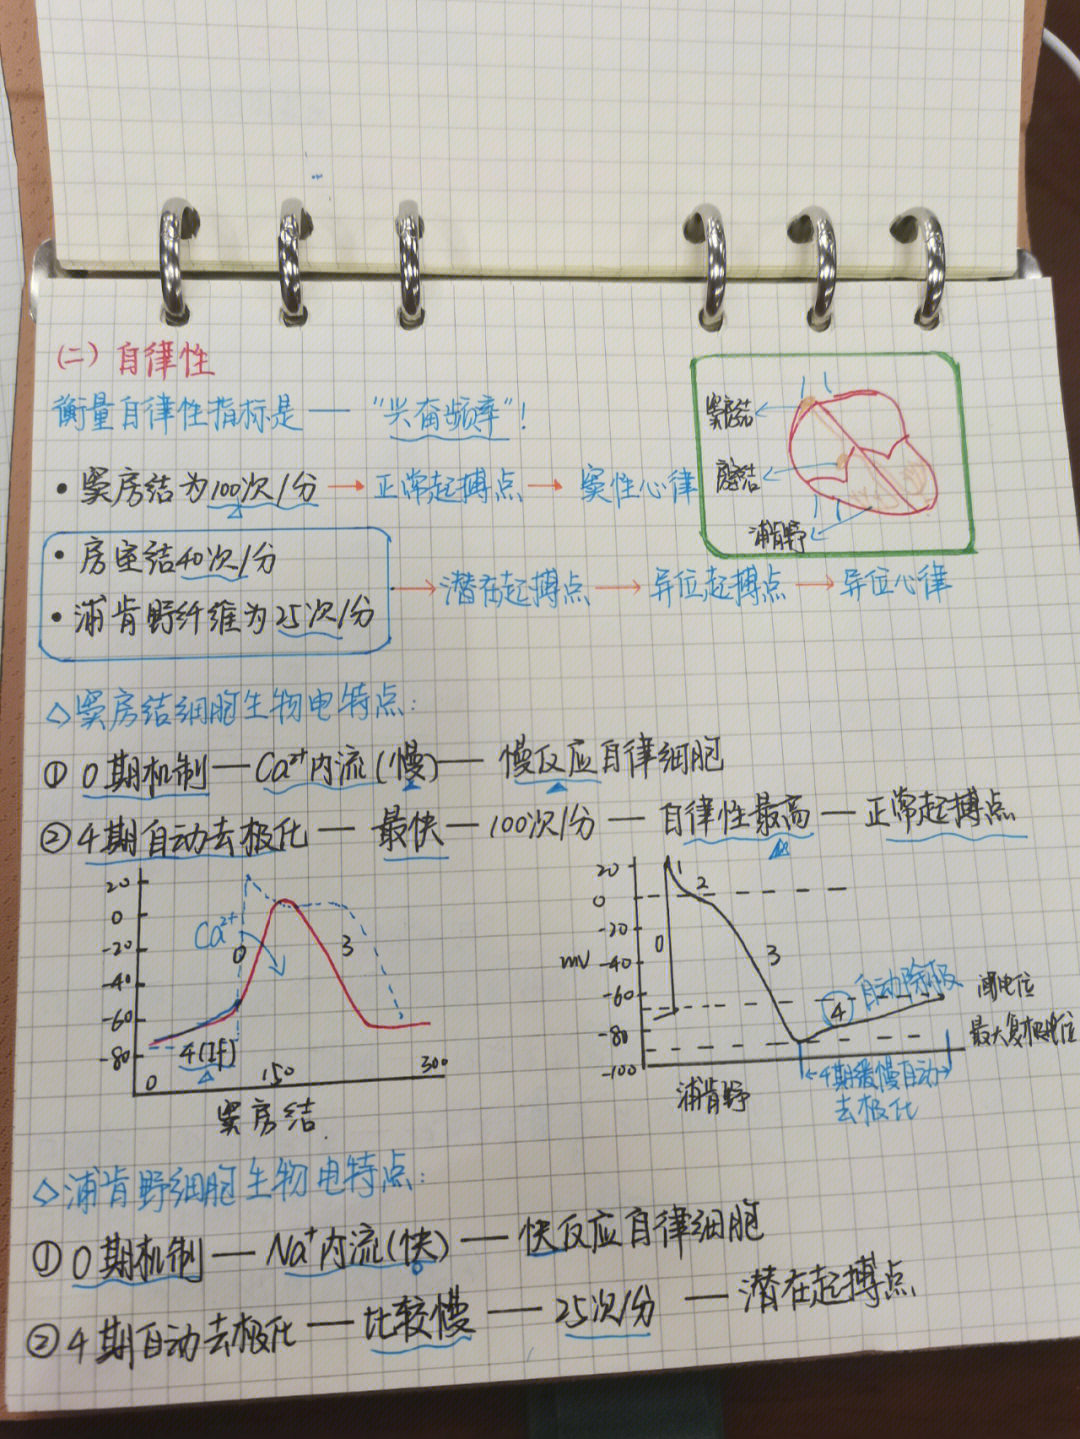 (二) 自律性
衡量自律性指标是 — “兴奋频率”!
· 窦房结为100次/分 → 正常起搏点 → 窦性心律
窦房结
房室结
浦肯野
· 房室结40次/分
· 浦肯野纤维为25次/分
→ 潜在起搏点 → 异位起搏点 → 异位心律
◇窦房结细胞生物电特点:
① 0期机制 — Ca²⁺内流(慢) — 慢反应自律细胞
② 4期自动去极化 — 最快 — 100次/分 — 自律性最高 — 正常起搏点
20
0
-20
-40
-60
-80
Ca²⁺
0
3
4(If)
0 150 300
窦房结
mV
20
0
-20
-40
-60
-80
-100
0
1
2
3
④ 自动除极
阈电位
最大复极电位
4期缓慢自动
去极化
浦肯野
◇浦肯野细胞生物电特点:
① 0期机制 — Na⁺内流(快) — 快反应自律细胞
② 4期自动去极化 — 比较慢 — 25次/分 — 潜在起搏点